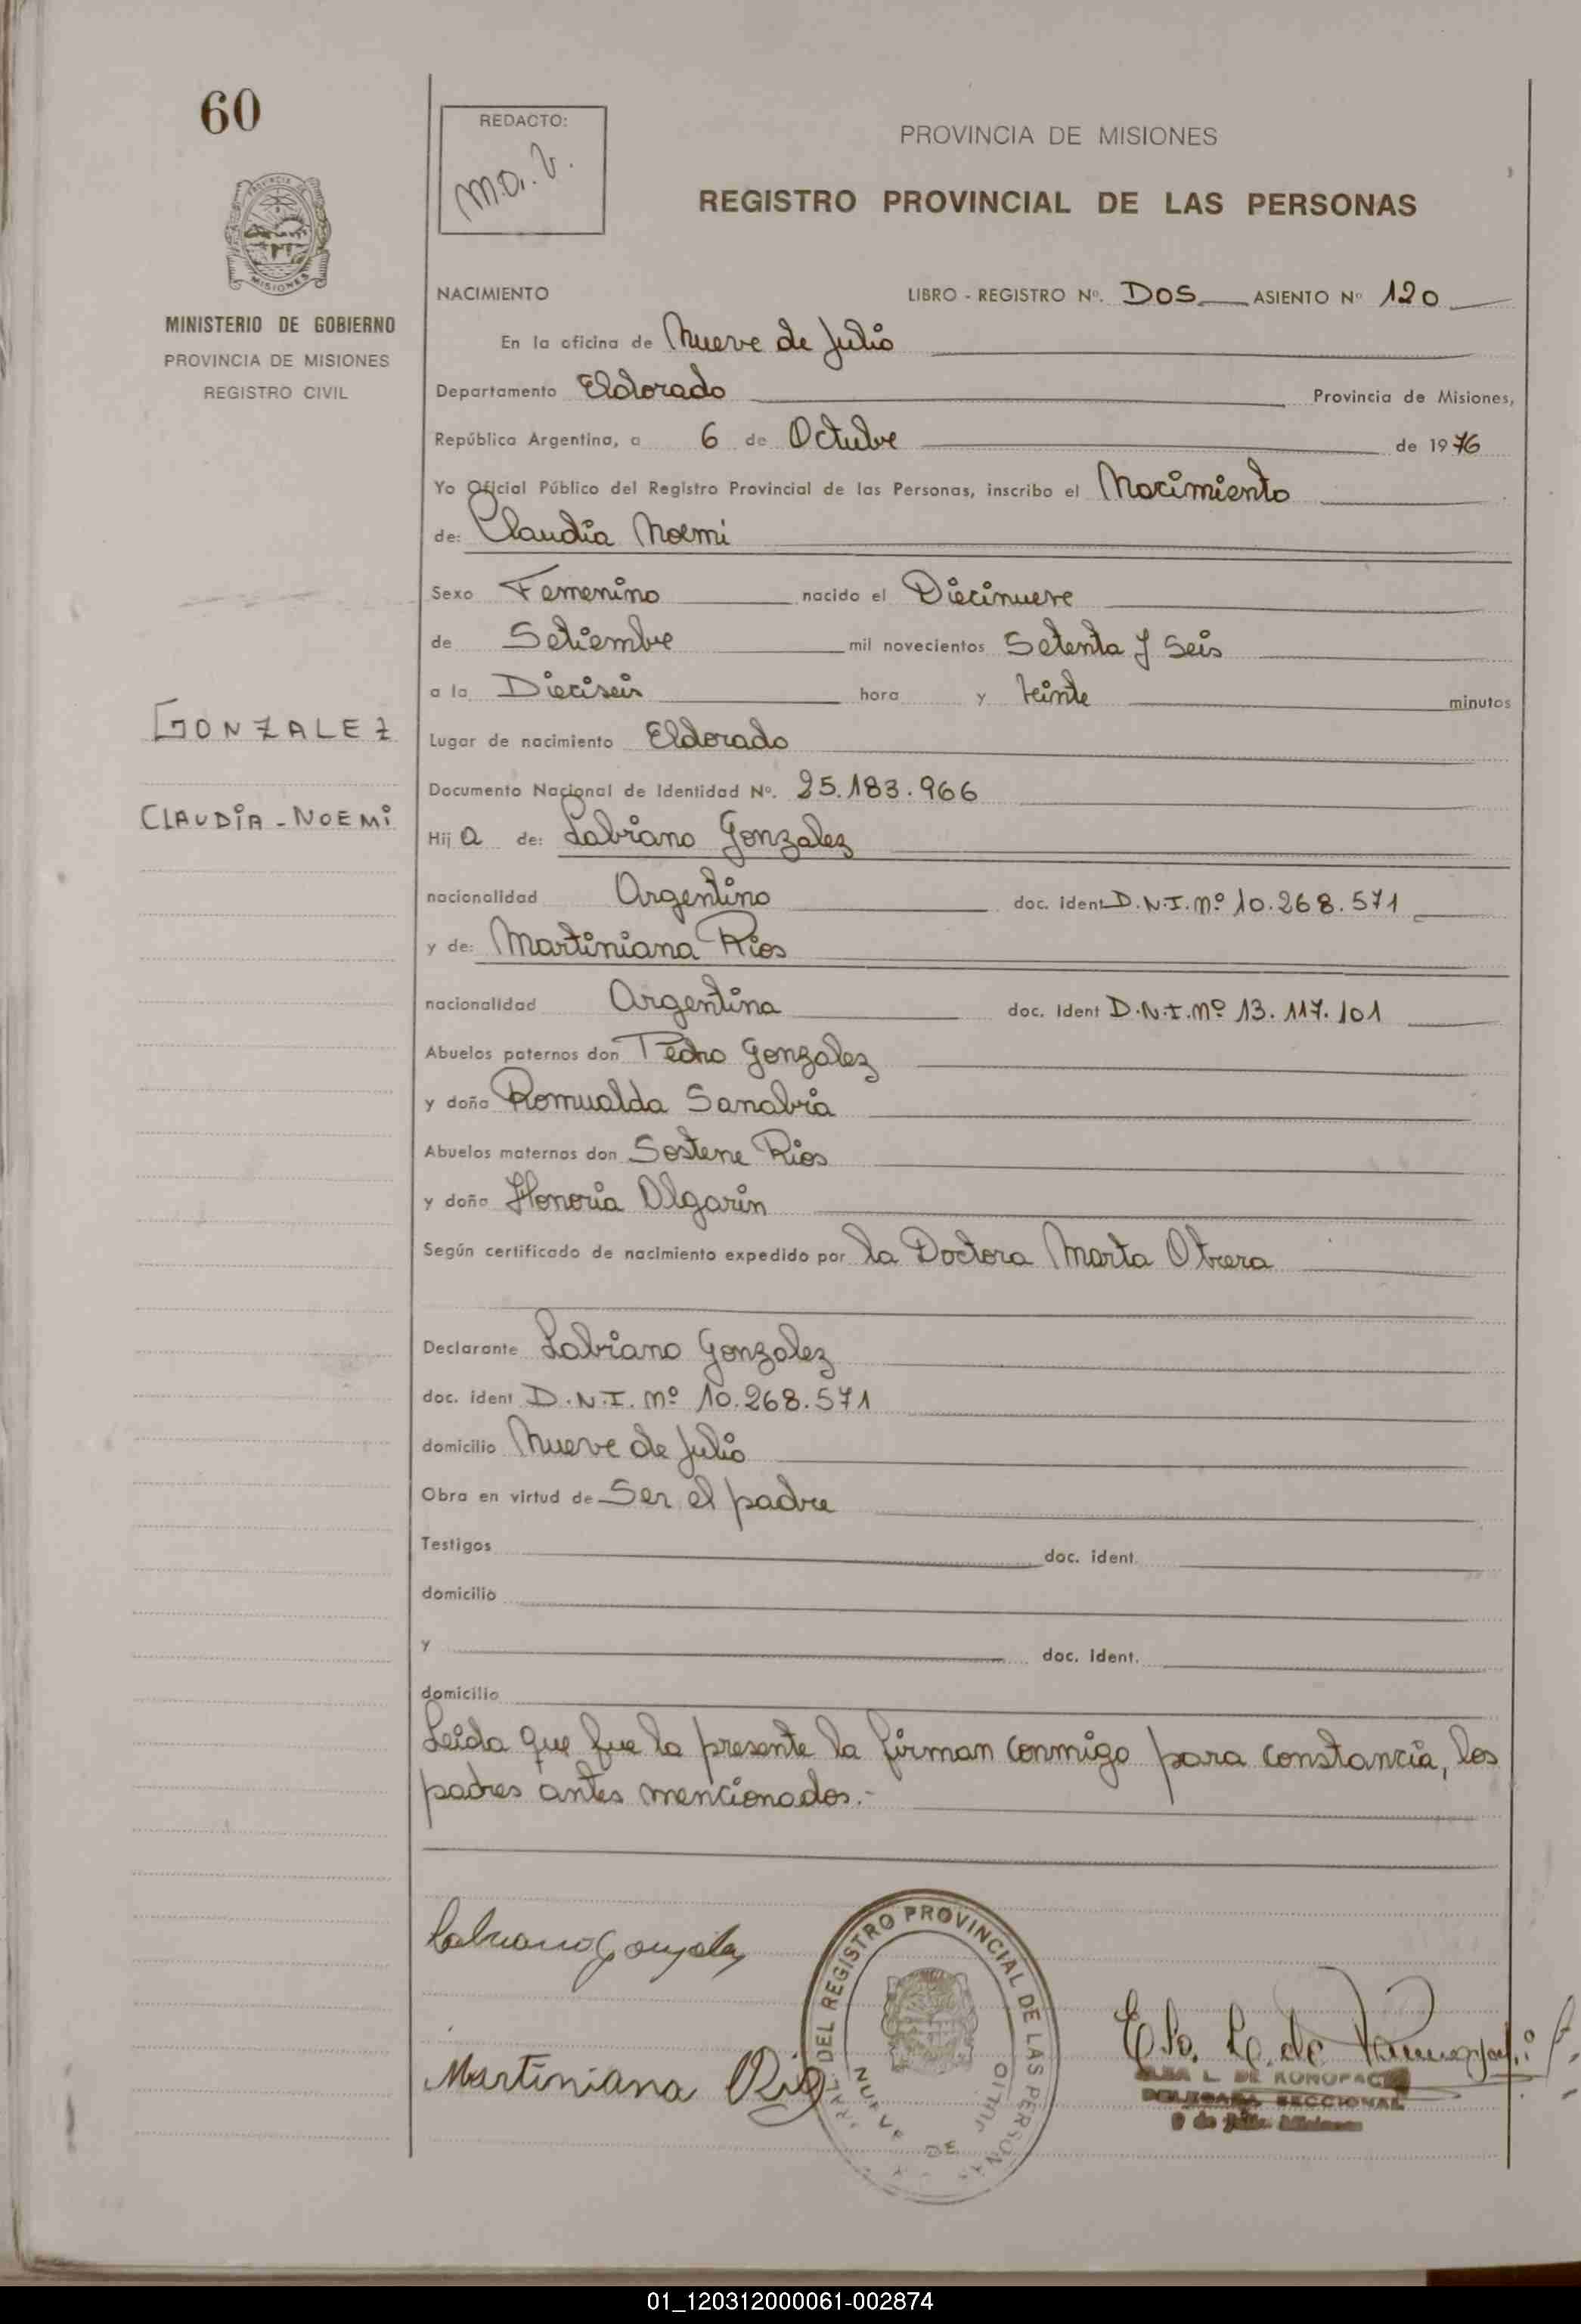 60
REDACTO:
PROVINCIA DE MISIONES
REGISTRO PROVINCIAL DE LAS PERSONAS
MISIONES
MINISTERIO DE GOBIERNO
PROVINCIA DE MISIONES
REGISTRO CIVIL
GONZALEZ
CLAUDIA - NOEMI
NACIMIENTO LIBRO - REGISTRO Nº. DOS ASIENTO Nº 120
En la oficina de Nueve de Julio
Departamento Eldorado Provincia de Misiones,
República Argentina, a 6 de Octubre de 1976
Yo Oficial Público del Registro Provincial de las Personas, inscribo el Nacimiento
de: Claudia Noemi
Sexo Femenino nacido el Diecinueve
de Setiembre mil novecientos Setenta y Seis
a la Dieciseis hora y Veinte minutos
Lugar de nacimiento Eldorado
Documento Nacional de Identidad Nº. 25.183.966
Hij a de: Labriano Gonzalez
nacionalidad Argentino doc. ident D.N.I. Nº 10.268.571
y de: Martiniana Rios
nacionalidad Argentina doc. ident D.N.I. Nº 13.117.101
Abuelos paternos don Pedro Gonzalez
y doña Romualda Sanabria
Abuelos maternos don Sostene Rios
y doña Honoria Olgarin
Según certificado de nacimiento expedido por la Doctora Marta Obrera
Declarante Labriano Gonzalez
doc. ident D.N.I. Nº 10.268.571
domicilio Nueve de Julio
Obra en virtud de Ser el padre
Testigos doc. ident.
domicilio
y doc. ident.
domicilio
Leida que fue la presente la firman conmigo para constancia, los
padres antes mencionados.-
Labriano Gonzalez
Martiniana Rios
DEL REGISTRO PROVINCIAL DE LAS PERSONAS
NUEVE DE JULIO
L. DE KONOPAC
DELEGADA SECCIONAL
9 de Julio - Misiones
01_120312000061-002874